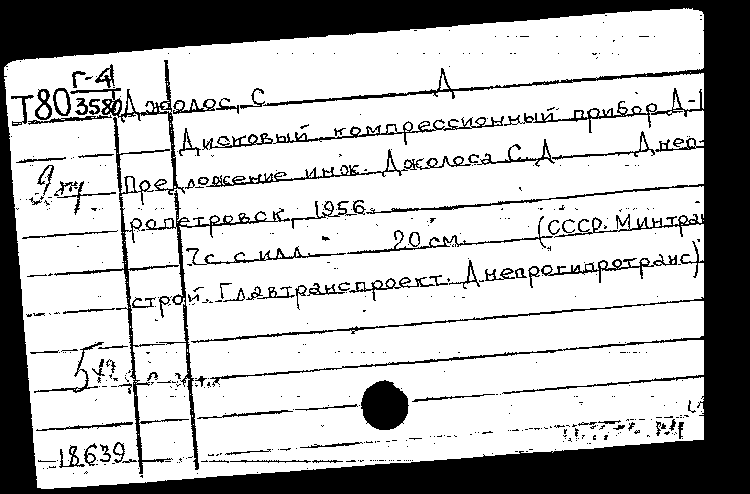 Г-4
Т80 3580 Джолос, С Д
Дисковый компрессионный прибор Д-1
Предложение инж. Джолоса С. Д Днеп-
ропетровск, 1956.
7с. с илл. 20 см. (СССР. Минтран
строй. Главтранспроект. Днепрогипротранс)
18639